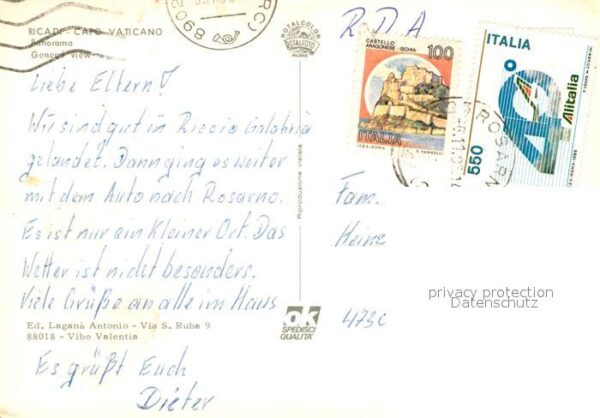 RICADI - CAPO VATICANO
Panorama
General view
Liebe Eltern!
Wir sind gut in Riccio Calabria
gelandet. Dann ging es weiter
mit dem Auto nach Rosarno.
Es ist nur ein Kleiner Ort. Das
Wetter ist nicht besonders.
Viele Grüße an alle im Haus
Ed. Laganà Antonio - Via S. Ruba 9
88018 - Vibo Valentia
Es grüßt Euch
Dieter
ROTALCOLOR
ROTALFOTO
MILANO
Riproduzione vietata
ok
SPEDISCI
QUALITA'
R.D.A
CASTELLO
ARAGONESE - ISCHIA
100
ITALIA
I.P.Z.S. - ROMA
ITALIA
40°
Alitalia
550
ROSARN
Fam.
Heinz
privacy protection
Datenschutz